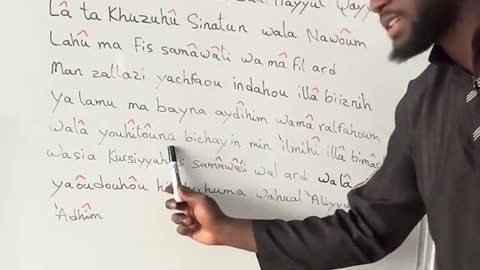 Hayyul Qay
Lâ ta Khuzuhû Sinatun wala Nawôum
Lahû ma Fis samâwâti wa mâ Fil ard
Man zallazi yachfaou indahou illâ biiznih
Ya lamu ma bayna aydîhim wamâ ralfahoum
walâ youhîtôuna bichay in min 'ilmihî illâ bimâ
wasia Kursiyyuh s samâwâti wal ard walâ
yaôudouhôu wahual 'Aliyyu
'Adhîm